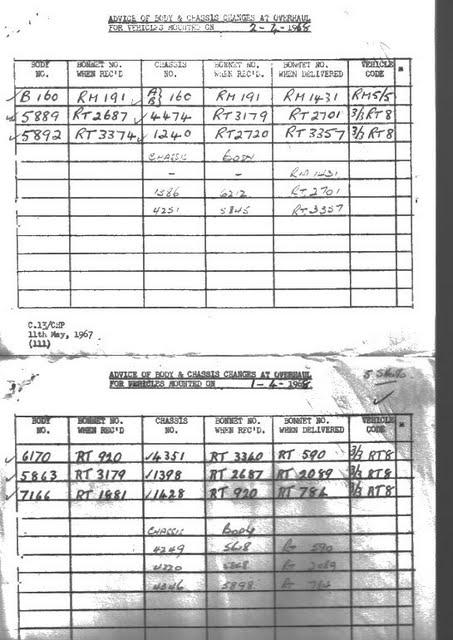 ADVICE OF BODY & CHASSIS CHANGES AT OVERHAUL
FOR VEHICLES MOUNTED ON 2-4-1968
BODY NO. BONNET NO. WHEN REC'D CHASSIS NO. BONNET NO. WHEN REC'D. BONNET NO. WHEN DELIVERED VEHICLE CODE *
✓ B160 RM 191 A} B} 160 RM 191 RM 1431 RM5/5
✓ 5889 RT 2687 ✓ 4474 RT 3179 RT 2701 3/3 RT8
✓ 5892 RT 3374 ✓ 1240 RT 2720 RT 3357 3/3 RT8
CHASSIS BODY
- - RM 1431
1586 6212 RT 2701
4251 5845 RT 3357
C.13/CHP
11th May, 1967
(111)
ADVICE OF BODY & CHASSIS CHANGES AT OVERHAUL
FOR VEHICLES MOUNTED ON 1-4-1968
BODY NO. BONNET NO. WHEN REC'D CHASSIS NO. BONNET NO. WHEN REC'D. BONNET NO. WHEN DELIVERED VEHICLE CODE *
✓ 6170 RT 920 ✓ 4351 RT 3360 RT 590 3/3 RT8
✓ 5863 RT 3179 ✓ 1398 RT 2687 RT 2089 3/3 RT8
✓ 7166 RT 1881 ✓ 1428 RT 920 RT 786 3/3 RT8
CHASSIS BODY
4249 RT 590
4220 RT 2089
4346 5898